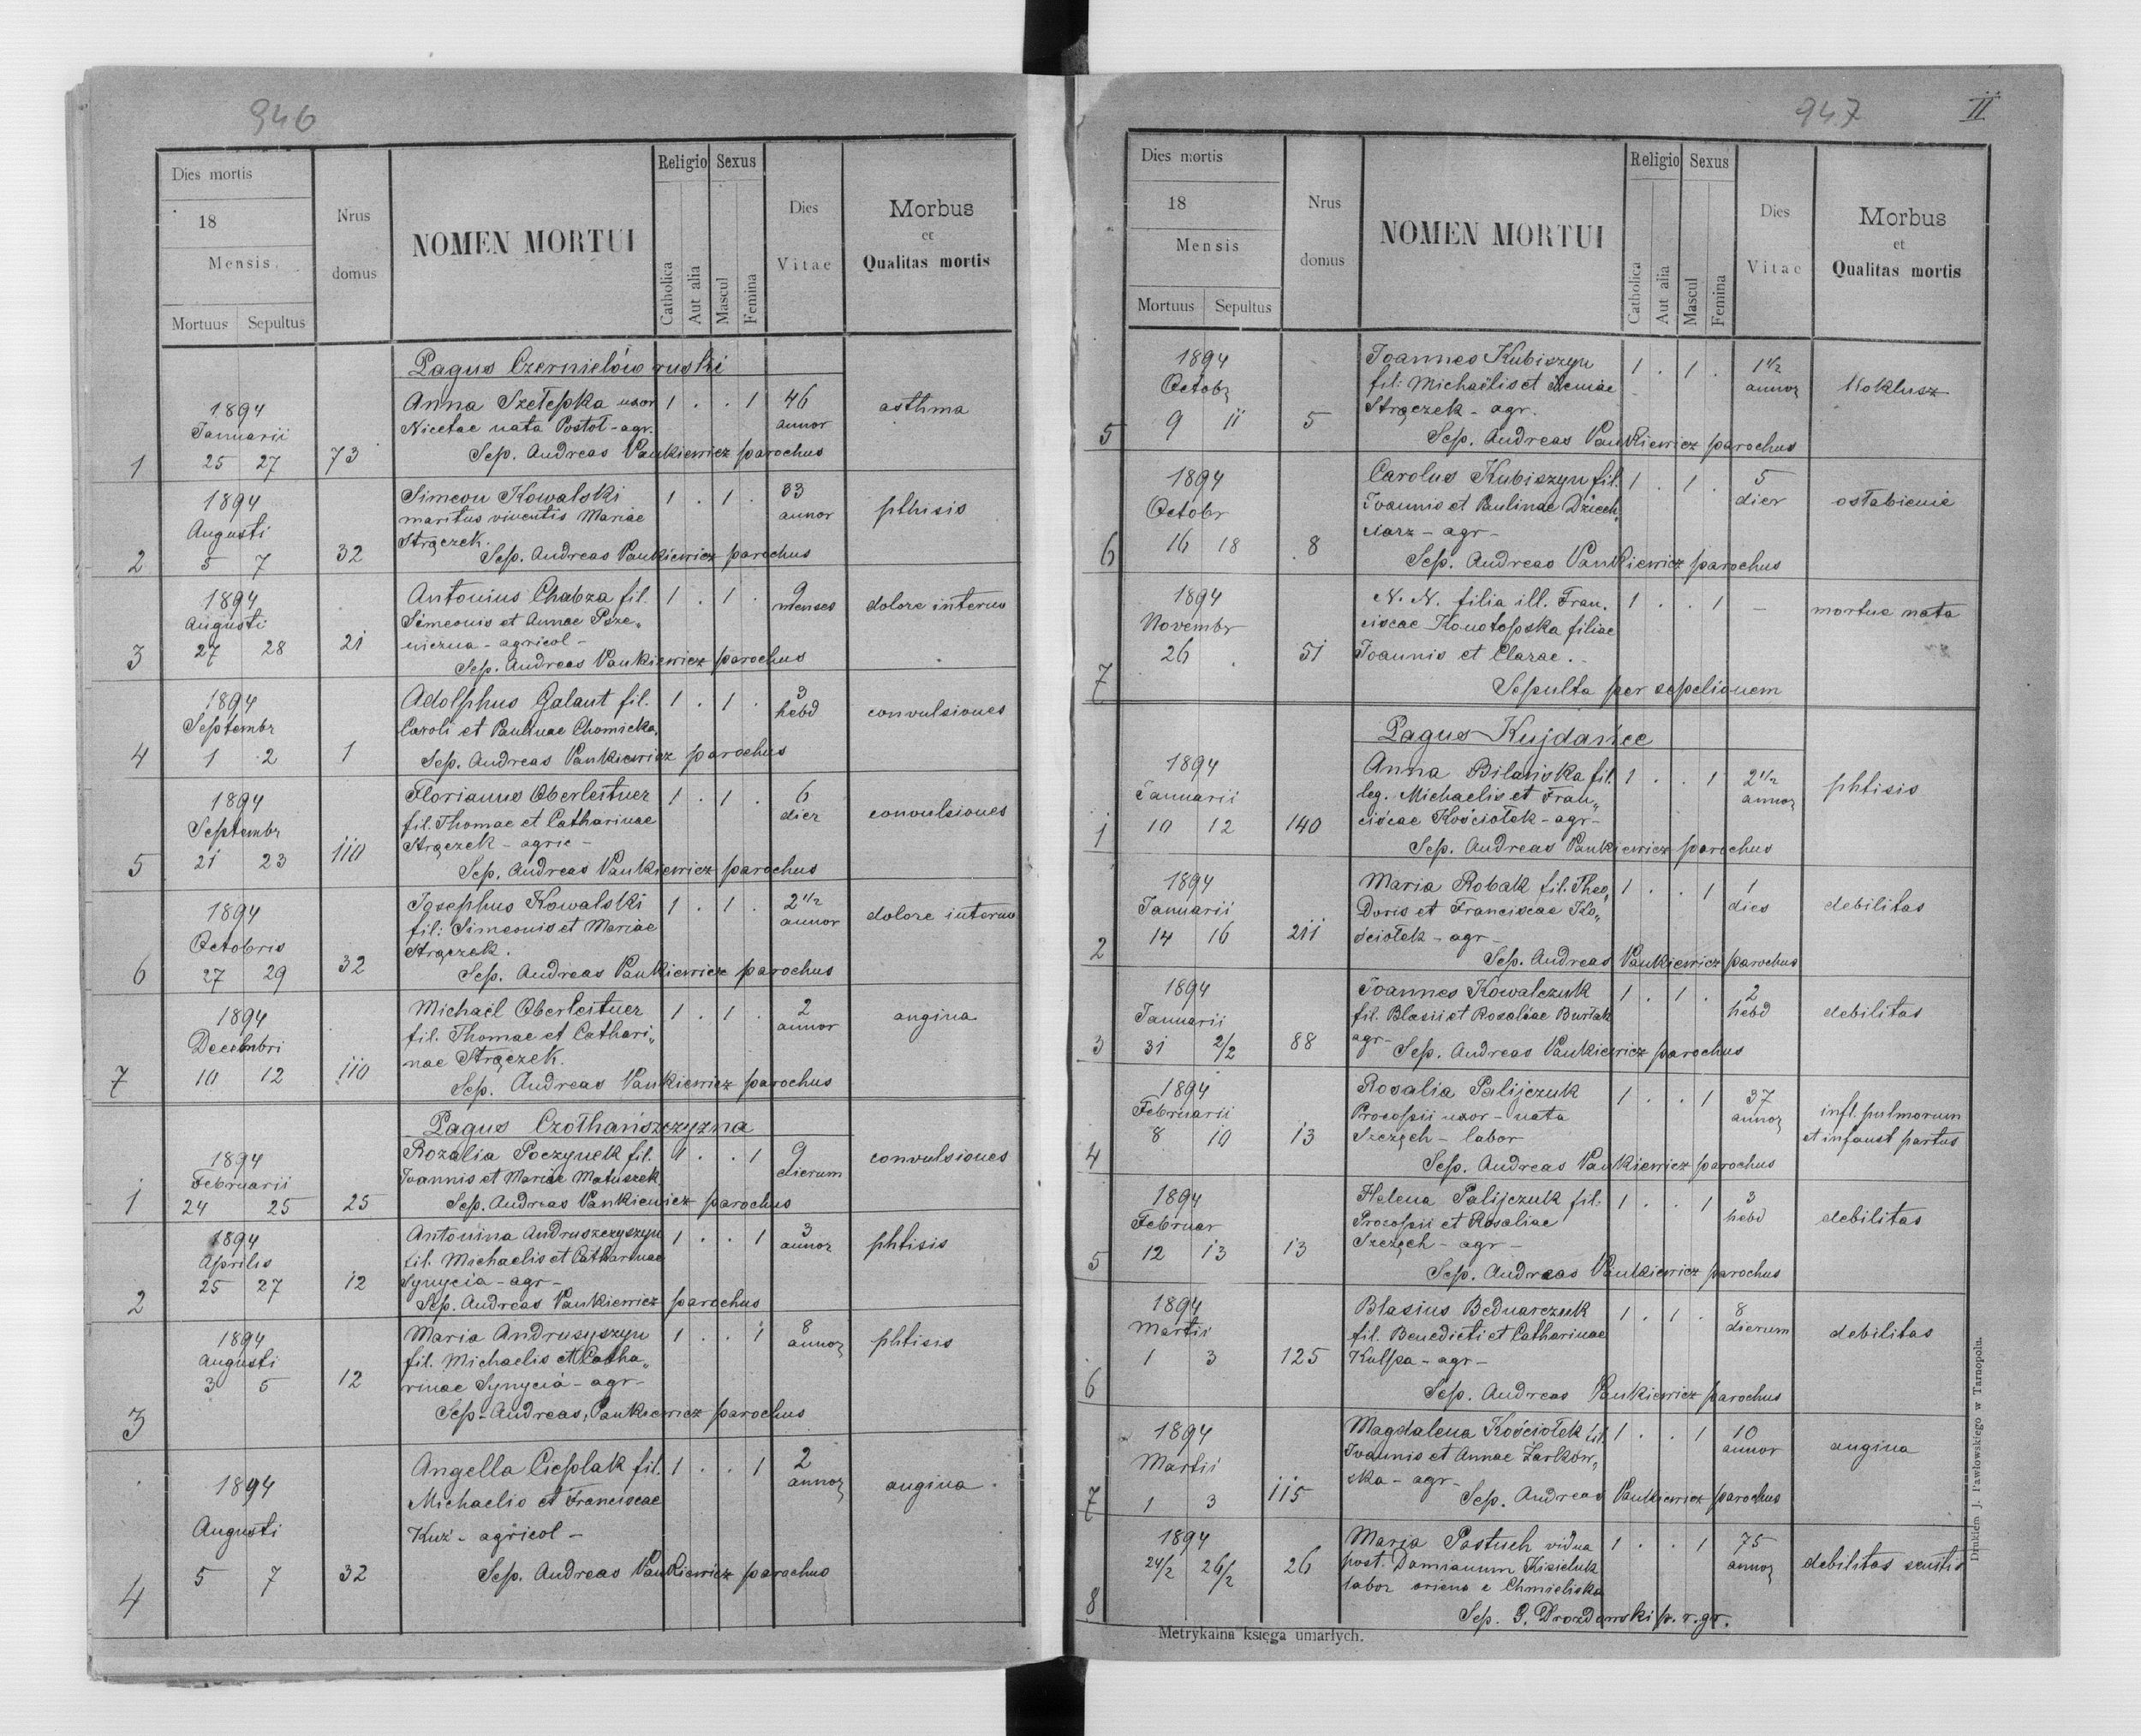 946
Dies mortis
18
Mensis
Mortuus Sepultus
Nrus domus
NOMEN MORTUI
Religio
Catholica
Aut alia
Sexus
Mascul
Femina
Dies Vitae
Morbus
et
Qualitas mortis
Pagus Czernielów ruski
1894 Anna Szetepka uxor 1 . . 1 46 asthma
Januarii Nicetae nata Postoł - agr. annor
1 25 27 73 Sep. Andreas Pankiewicz parochus
1894 Simeon Kowalski 1 . 1 . 83 phtisis
Augusti maritus viventis Mariae annor
2 5 7 32 Strączek.
Sep. Andreas Pankiewicz parochus
1894 Antonius Chabza fil. 1 . 1 . 9 dolore interno
Augusti Simeonis et Annae Psze„ menses
3 27 28 21 wiczna - agricol -
Sep. Andreas Pankiewicz parochus
1894 Adolphus Galant fil. 1 . 1 . 3 convulsiones
Septembr Caroli et Paulinae Chomicka, hebd
4 1 2 1 Sep. Andreas Pankiewicz parochus
1894 Florianus Oberleitner 1 . 1 . 6 convulsiones
Septembr fil. Thomae et Catharinae dier
5 21 23 110 Strączek - agric -
Sep. Andreas Pankiewicz parochus
1894 Josephus Kowalski 1 . 1 . 2 1/2 dolore interno
Octobris fil: Simeonis et Mariae annor
6 27 29 32 Strączek.
Sep. Andreas Pankiewicz parochus
1894 Michaël Oberleitner 1 . 1 . 2 angina
Decembri fil. Thomae et Cathari„ annor
7 10 12 110 nae Strączek.
Sep. Andreas Pankiewicz parochus
Pagus Czothańszczyzna
1894 Rozalia Poczynek fil. 1 . . 1 9 convulsiones
Februarii Joannis et Mariae Matuszek dierum
1 24 25 25 Sep. Andreas Pankiewicz parochus
1894 Antonina Andruszczyszyn 1 . . 1 3 phtisis
Aprilis fil. Michaelis et Catharinae annor
2 25 27 12 Synycia - agr -
Sep. Andreas Pankiewicz parochus
1894 Maria Andrusyszyn 1 . . 1 8 phtisis
Augusti fil. Michaelis et Catha„ annor
3 3 5 12 rinae Synycia - agr -
Sep - Andreas Pankiewicz parochus
1894 Angella Cieplak fil. 1 . . 1 2 angina
Michaelis et Franciscae annor
Augusti Kuź - agricol -
4 5 7 32 Sep. Andreas Pankiewicz parochus
947
II
Dies mortis
18
Mensis
Mortuus Sepultus
Nrus domus
NOMEN MORTUI
Religio
Catholica
Aut alia
Sexus
Mascul
Femina
Dies Vitae
Morbus
et
Qualitas mortis
1894 Joannes Kubiszyn 1 . 1 . 1 1/2 Koklusz
Octobr fil: Michaëlis et annor
5 9 11 5 Strączek - agr.
Sep. Andreas Pankiewicz parochus
1894 Carolus Kubiszyn fil. 1 . 1 . 5 osłabienie
Octobr Joannis et Paulinae Dziech„ dier
6 16 18 8 ciarz - agr -
Sep. Andreas Pankiewicz parochus
1894 N. N. filia ill. Fran. 1 . . 1 - mortue nata
Novembr ciscae Konotopska filiae
7 26 . 51 Joannis et Clarae.
Sepulta per sepelionem
Pagus Kujdańce
1894 Anna Bilańska fil. 1 . . 1 2 1/2 phtisis
Januarii leg. Michaelis et Fran„ annor
1 10 12 140 ciscae Kościołek - agr -
Sep. Andreas Pankiewicz parochus
1894 Maria Robak fil. Theo„ 1 . . 1 1 debilitas
Januarii Doris et Franciscae Ko„ dies
2 14 16 211 ściołek - agr -
Sep. Andreas Pankiewicz parochus
1894 Joannes Kowalczuk 1 . 1 . 2 debilitas
Januarii fil. Blasii et Rosaliae Burłak hebd
3 31 2/2 88 agr - Sep. Andreas Pankiewicz parochus
1894 Rosalia Palijczuk 1 . . 1 37 infl. pulmorum
Februarii Procopii uxor - nata annor et infaust partus
4 8 10 13 Szczęch - labor
Sep. Andreas Pankiewicz parochus
1894 Helena Palijczuk fil. 1 . . 1 3 debilitas
Februar Procopii et Rosaliae hebd
5 12 13 13 Szczęch - agr -
Sep. Andreas Pankiewicz parochus
1894 Blasius Bednarczuk 1 . 1 . 8 debilitas
Martii fil. Benedicti et Catharinae dierum
6 1 3 125 Kulpa - agr -
Sep. Andreas Pankiewicz parochus
1894 Magdalena Kościołek fil. 1 . . 1 10 angina
Martii Joannis et Annae Zarków„ annor
7 1 3 115 ska - agr -
Sep. Andreas Pankiewicz parochus
1894 Maria Pastuch vidua 1 . . 1 75 debilitas senilis
24/2 26/2 26 post. Damianum Kisieluk annor
labor oriens e Chmieliska
8 Sep. G. Drozdowski p. r. gr.
Metrykalna księga umarłych.
Drukiem J. Pawłowskiego w Tarnopolu.